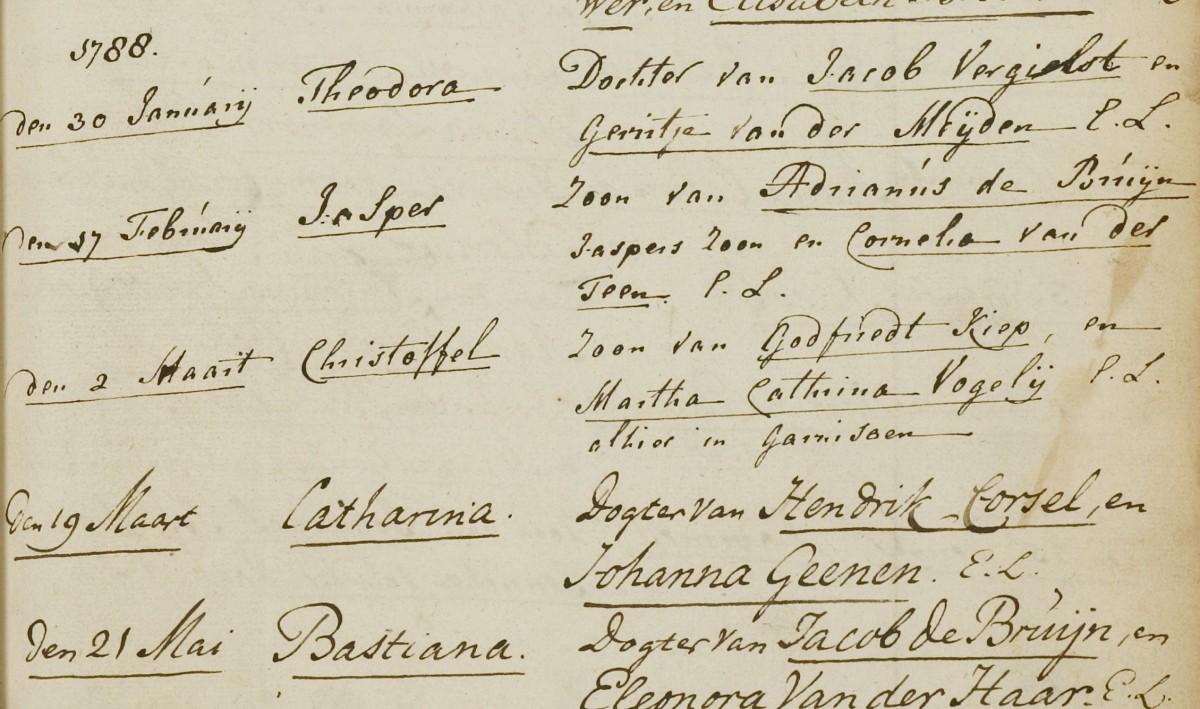 Wer, en Elisabeth
1788.
den 30 Januarij Theodora Dochter van Jacob Vergielst en
Gerritje van der Meijden E. L.
den 17 Februarij Jasper Zoon van Adrianus de Bruijn
Jaspers Zoon en Cornelia van der
Teen. E. L.
den 2 Maart Christoffel Zoon van Godfriedt Kiep, en
Martha Cathrina Vogelij E. L.
alhier in Garnisoen
den 19 Maart Catharina. Dogter van Hendrik Corsel, en
Johanna Geenen. E. L.
den 21 Mai Bastiana. Dogter van Jacob de Bruijn, en
Eleonora Van der Haar. E. L.